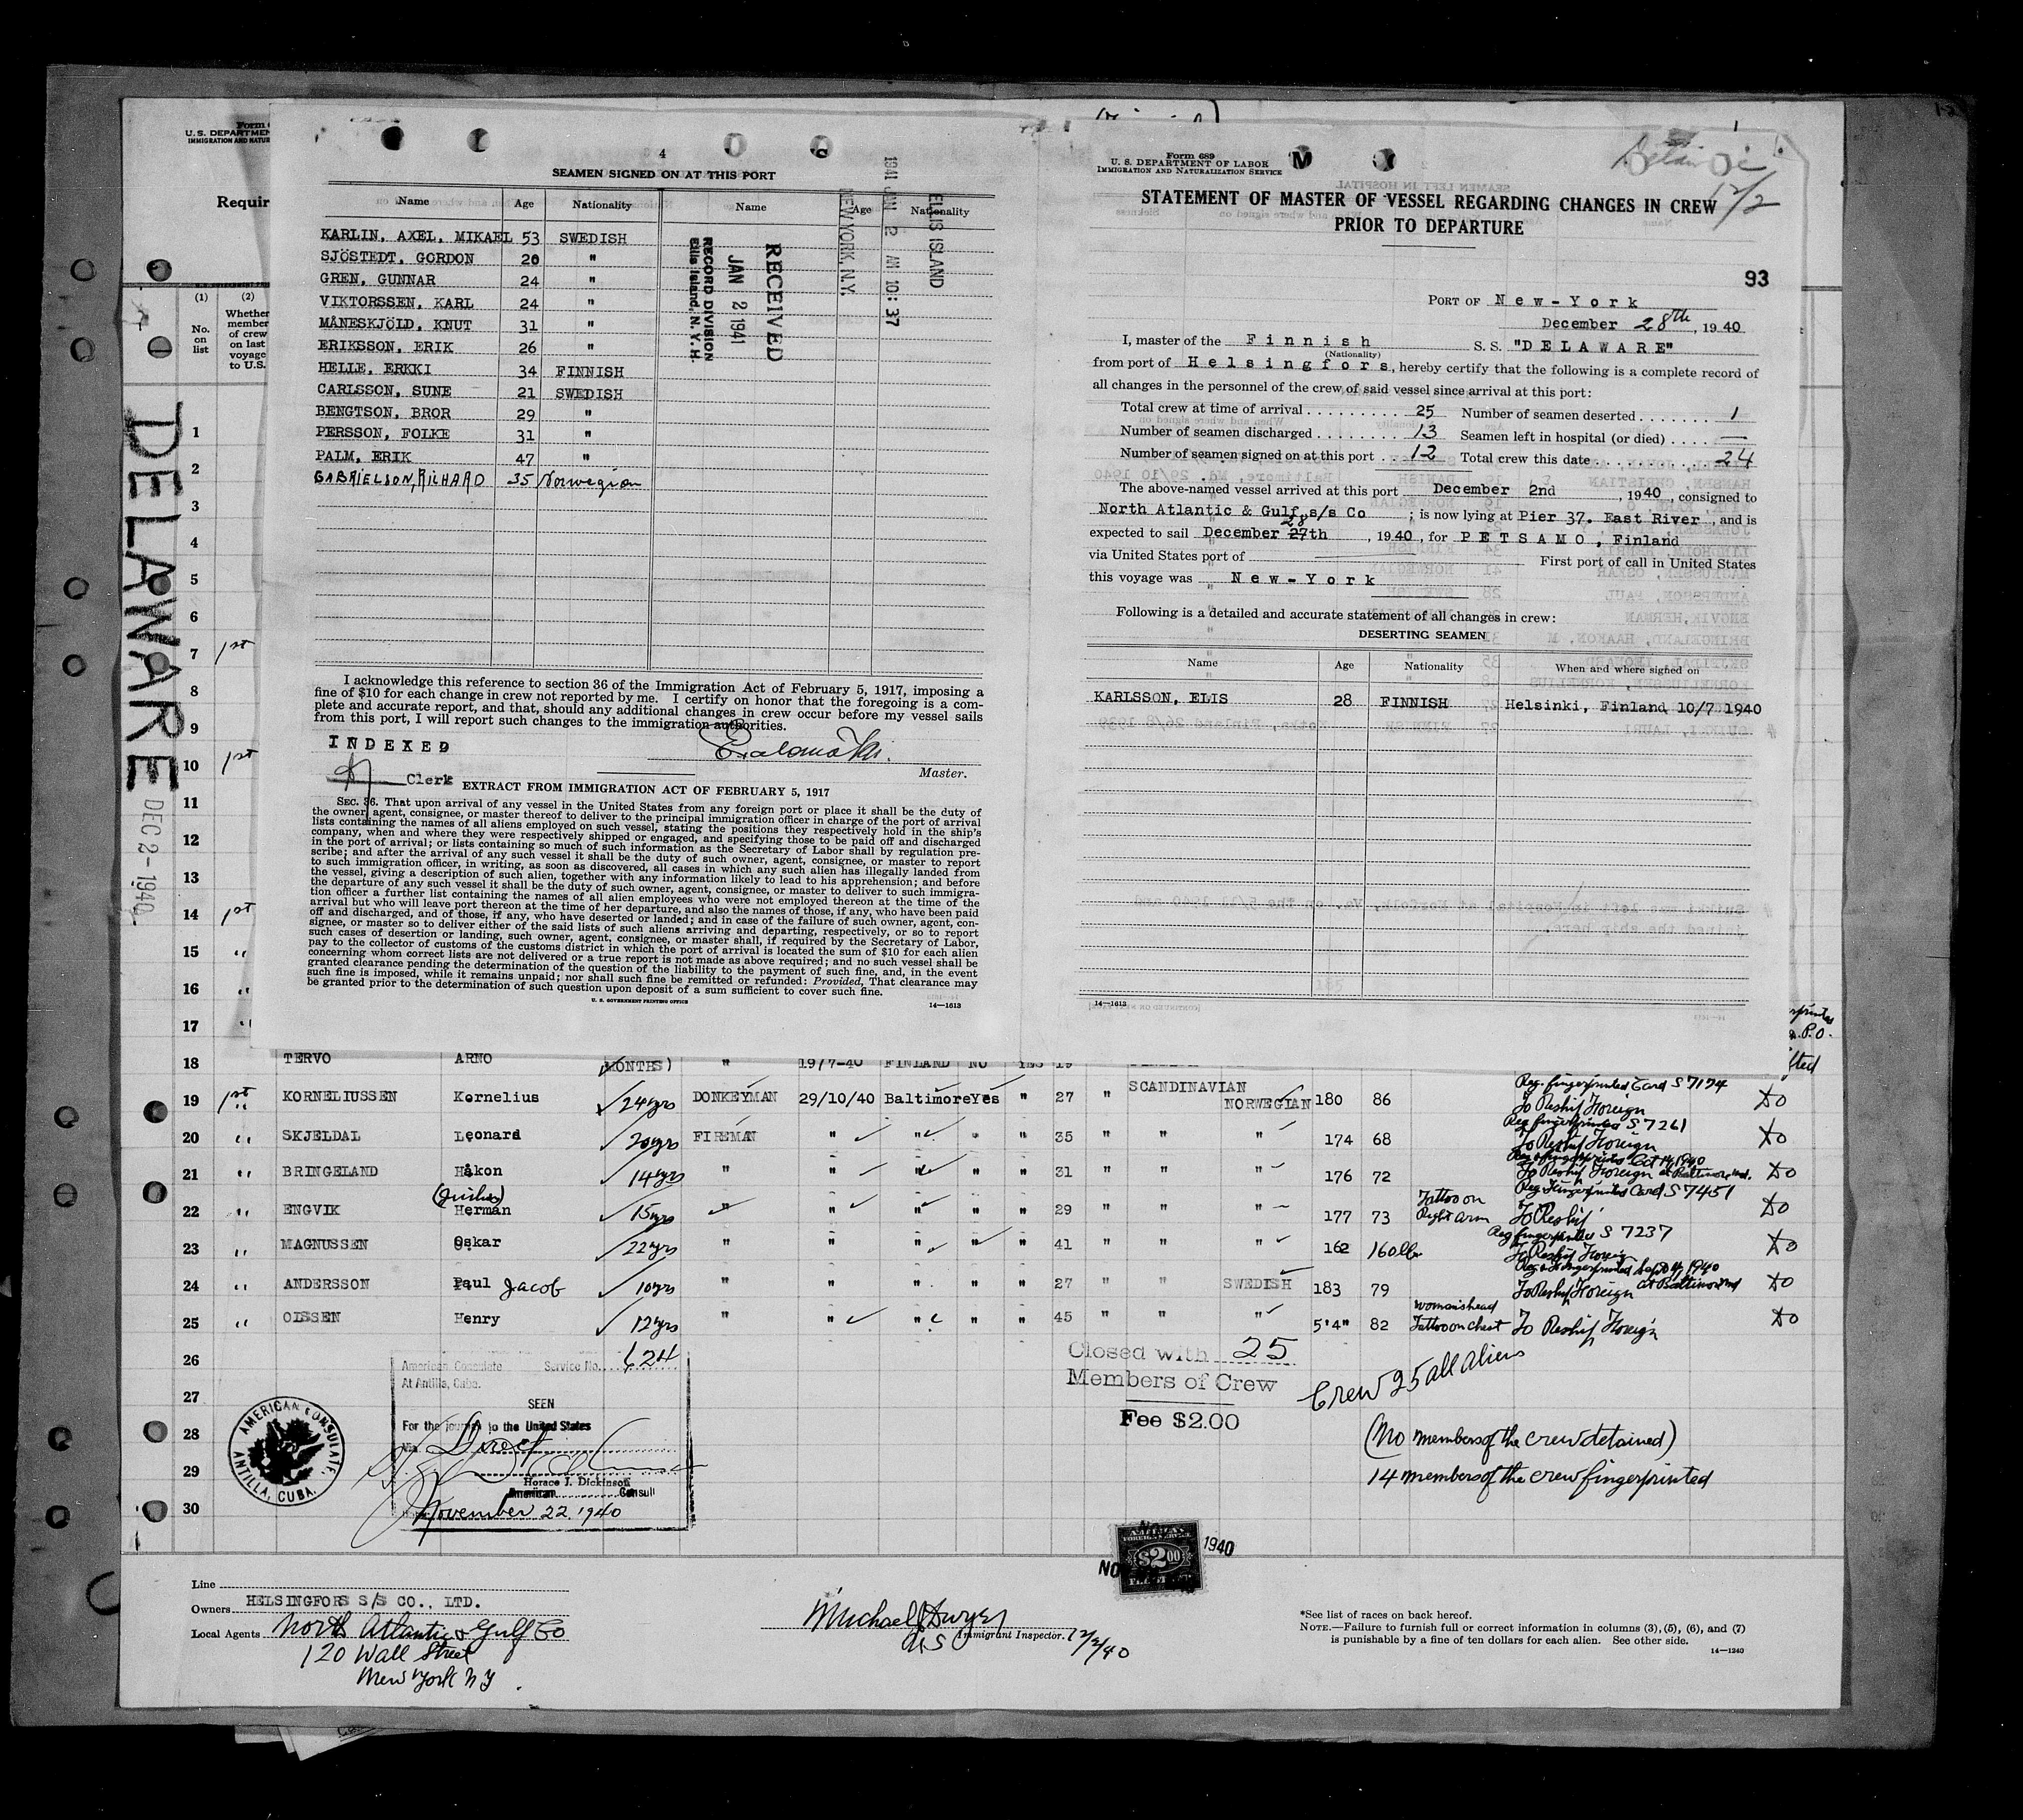 4
SEAMEN SIGNED ON AT THIS PORT
Name Age Nationality Name Age Nationality
KARLIN, AXEL, MIKAEL 53 SWEDISH
SJÖSTEDT, GORDON 20 "
GREN, GUNNAR 24 "
VIKTORSSEN, KARL 24 "
MÅNESKJÖLD, KNUT 31 "
ERIKSSON, ERIK 26 "
HELLE, ERKKI 34 FINNISH
CARLSSON, SUNE 21 SWEDISH
BENGTSON, BROR 29 "
PERSSON, FOLKE 31 "
PALM, ERIK 47 "
GABRIELSON, RICHARD 35 Norwegian
RECEIVED
JAN 2 1941
RECORD DIVISION
Ellis Island, N.Y.H.
NEW YORK, N.Y.
1941 JAN 2 AM 10:37
ELLIS ISLAND
I acknowledge this reference to section 36 of the Immigration Act of February 5, 1917, imposing a
fine of $10 for each change in crew not reported by me. I certify on honor that the foregoing is a com-
plete and accurate report, and that, should any additional changes in crew occur before my vessel sails
from this port, I will report such changes to the immigration authorities.
INDEXED
Master.
Clerk
EXTRACT FROM IMMIGRATION ACT OF FEBRUARY 5, 1917
SEC. 36. That upon arrival of any vessel in the United States from any foreign port or place it shall be the duty of
the owner, agent, consignee, or master thereof to deliver to the principal immigration officer in charge of the port of arrival
lists containing the names of all aliens employed on such vessel, stating the positions they respectively hold in the ship's
company, when and where they were respectively shipped or engaged, and specifying those to be paid off and discharged
in the port of arrival; or lists containing so much of such information as the Secretary of Labor shall by regulation pre-
scribe; and after the arrival of any such vessel it shall be the duty of such owner, agent, consignee, or master to report
to such immigration officer, in writing, as soon as discovered, all cases in which any such alien has illegally landed from
the vessel, giving a description of such alien, together with any information likely to lead to his apprehension; and before
the departure of any such vessel it shall be the duty of such owner, agent, consignee, or master to deliver to such immigra-
tion officer a further list containing the names of all alien employees who were not employed thereon at the time of the
arrival but who will leave port thereon at the time of her departure, and also the names of those, if any, who have been paid
off and discharged, and of those, if any, who have deserted or landed; and in case of the failure of such owner, agent, con-
signee, or master so to deliver either of the said lists of such aliens arriving and departing, respectively, or so to report
such cases of desertion or landing, such owner, agent, consignee, or master shall, if required by the Secretary of Labor,
pay to the collector of customs of the customs district in which the port of arrival is located the sum of $10 for each alien
concerning whom correct lists are not delivered or a true report is not made as above required; and no such vessel shall be
granted clearance pending the determination of the question of the liability to the payment of such fine, and, in the event
such fine is imposed, while it remains unpaid; nor shall such fine be remitted or refunded: Provided, That clearance may
be granted prior to the determination of such question upon deposit of a sum sufficient to cover such fine.
U. S. GOVERNMENT PRINTING OFFICE 14—1613
Form 689
U. S. DEPARTMENT OF LABOR
IMMIGRATION AND NATURALIZATION SERVICE
12/2
STATEMENT OF MASTER OF VESSEL REGARDING CHANGES IN CREW
PRIOR TO DEPARTURE
93
PORT OF New-York
December 28th, 1940
I, master of the Finnish S. S. "DELAWARE"
(Nationality)
from port of Helsingfors, hereby certify that the following is a complete record of
all changes in the personnel of the crew of said vessel since arrival at this port:
Total crew at time of arrival 25 Number of seamen deserted 1
Number of seamen discharged 13 Seamen left in hospital (or died) —
Number of seamen signed on at this port 12 Total crew this date 24
The above-named vessel arrived at this port December 2nd, 1940, consigned to
North Atlantic & Gulf s/s Co; is now lying at Pier 37. East River, and is
28
expected to sail December 27th, 1940, for PETSAMO, Finland
via United States port of First port of call in United States
this voyage was New-York
Following is a detailed and accurate statement of all changes in crew:
DESERTING SEAMEN
Name Age Nationality When and where signed on
KARLSSON, ELIS 28 FINNISH Helsinki, Finland 10/7 1940
14—1613
U. S. DEPARTMEN
IMMIGRATION AND NATUR
Requir
(1) (2)
No. on list
Whether member of crew on last voyage to U.S.
DELAWARE
DEC 2-1940
1
2
3
4
5
6
7 1st
8
9
10 1st
11
12
13
14 1st
15 "
16 "
17 "
18 TERVO ARNO MONTHS) " 19/7-40 FINLAND NO YES 19
19 1st KORNELIUSSEN Kornelius 24yrs DONKEYMAN 29/10/40 Baltimore Yes " 27 " SCANDINAVIAN NORWEGIAN 180 86 Reg. fingerprinted Card S 7174 To Reship Foreign
20 " SKJELDAL Leonard 20yrs FIREMAN " " " " 35 " " " 174 68 Reg fingerprinted S 7261 To Reship Foreign
21 " BRINGELAND Håkon 14yrs " " " " " 31 " " " 176 72 Reg & fingerprinted Oct 14, 1940 To Reship Foreign at Baltimore Md.
22 " ENGVIK Herman 15yrs " " " " 29 " " " 177 73 Tattoo on Right arm Reg Fingerprinted Card S 7451 To Reship
23 " MAGNUSSEN Oskar 22yrs " " " " " 41 " " " 162 160lbs Reg fingerprinted S 7237 To Reship Foreign
24 " ANDERSSON Paul Jacob 10yrs " " " " " 27 " " SWEDISH 183 79 To Reship Foreign at Baltimore Md
25 " OLSSEN Henry 12yrs " " " " " 45 " " " 5'4" 82 Womans head Tattoo on chest To Reship Foreign
26
27
28
29
30
American Consulate Service No. 624
At Antilla, Cuba.
SEEN
For the journey to the United States
Via Direct
Horace J. Dickinson
American Consul
November 22, 1940
AMERICAN CONSULATE, ANTILLA, CUBA.
Closed with 25
Members of Crew
Fee $2.00
Crew 25 all aliens
(No members of the crew detained)
14 members of the crew fingerprinted
$2.00
1940
Line
Owners HELSINGFORS S/S CO., LTD.
Local Agents North Atlantic & Gulf Co
120 Wall Street
New York NY
Michael Dwyer
U S Immigrant Inspector. 12/2/40
*See list of races on back hereof.
NOTE.—Failure to furnish full or correct information in columns (3), (5), (6), and (7)
is punishable by a fine of ten dollars for each alien. See other side.
14—1240